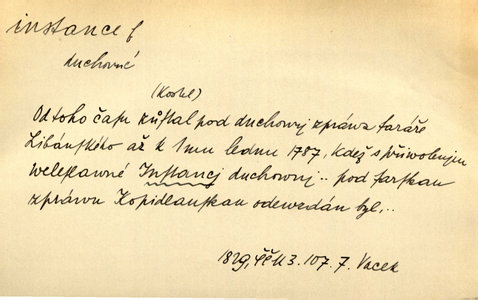 instance f
duchovné
(kostel)
Od toho času zůstal pod duchownj zpráwau faráře
Libáňského až k 1mu lednu 1787, když s přiwolenjm
weleslawné Instancj duchownj .. pod farskau
zpráwu Kopidlanskau odewzdán byl,..
1829, ČČM 3. 107. 7. Vacek